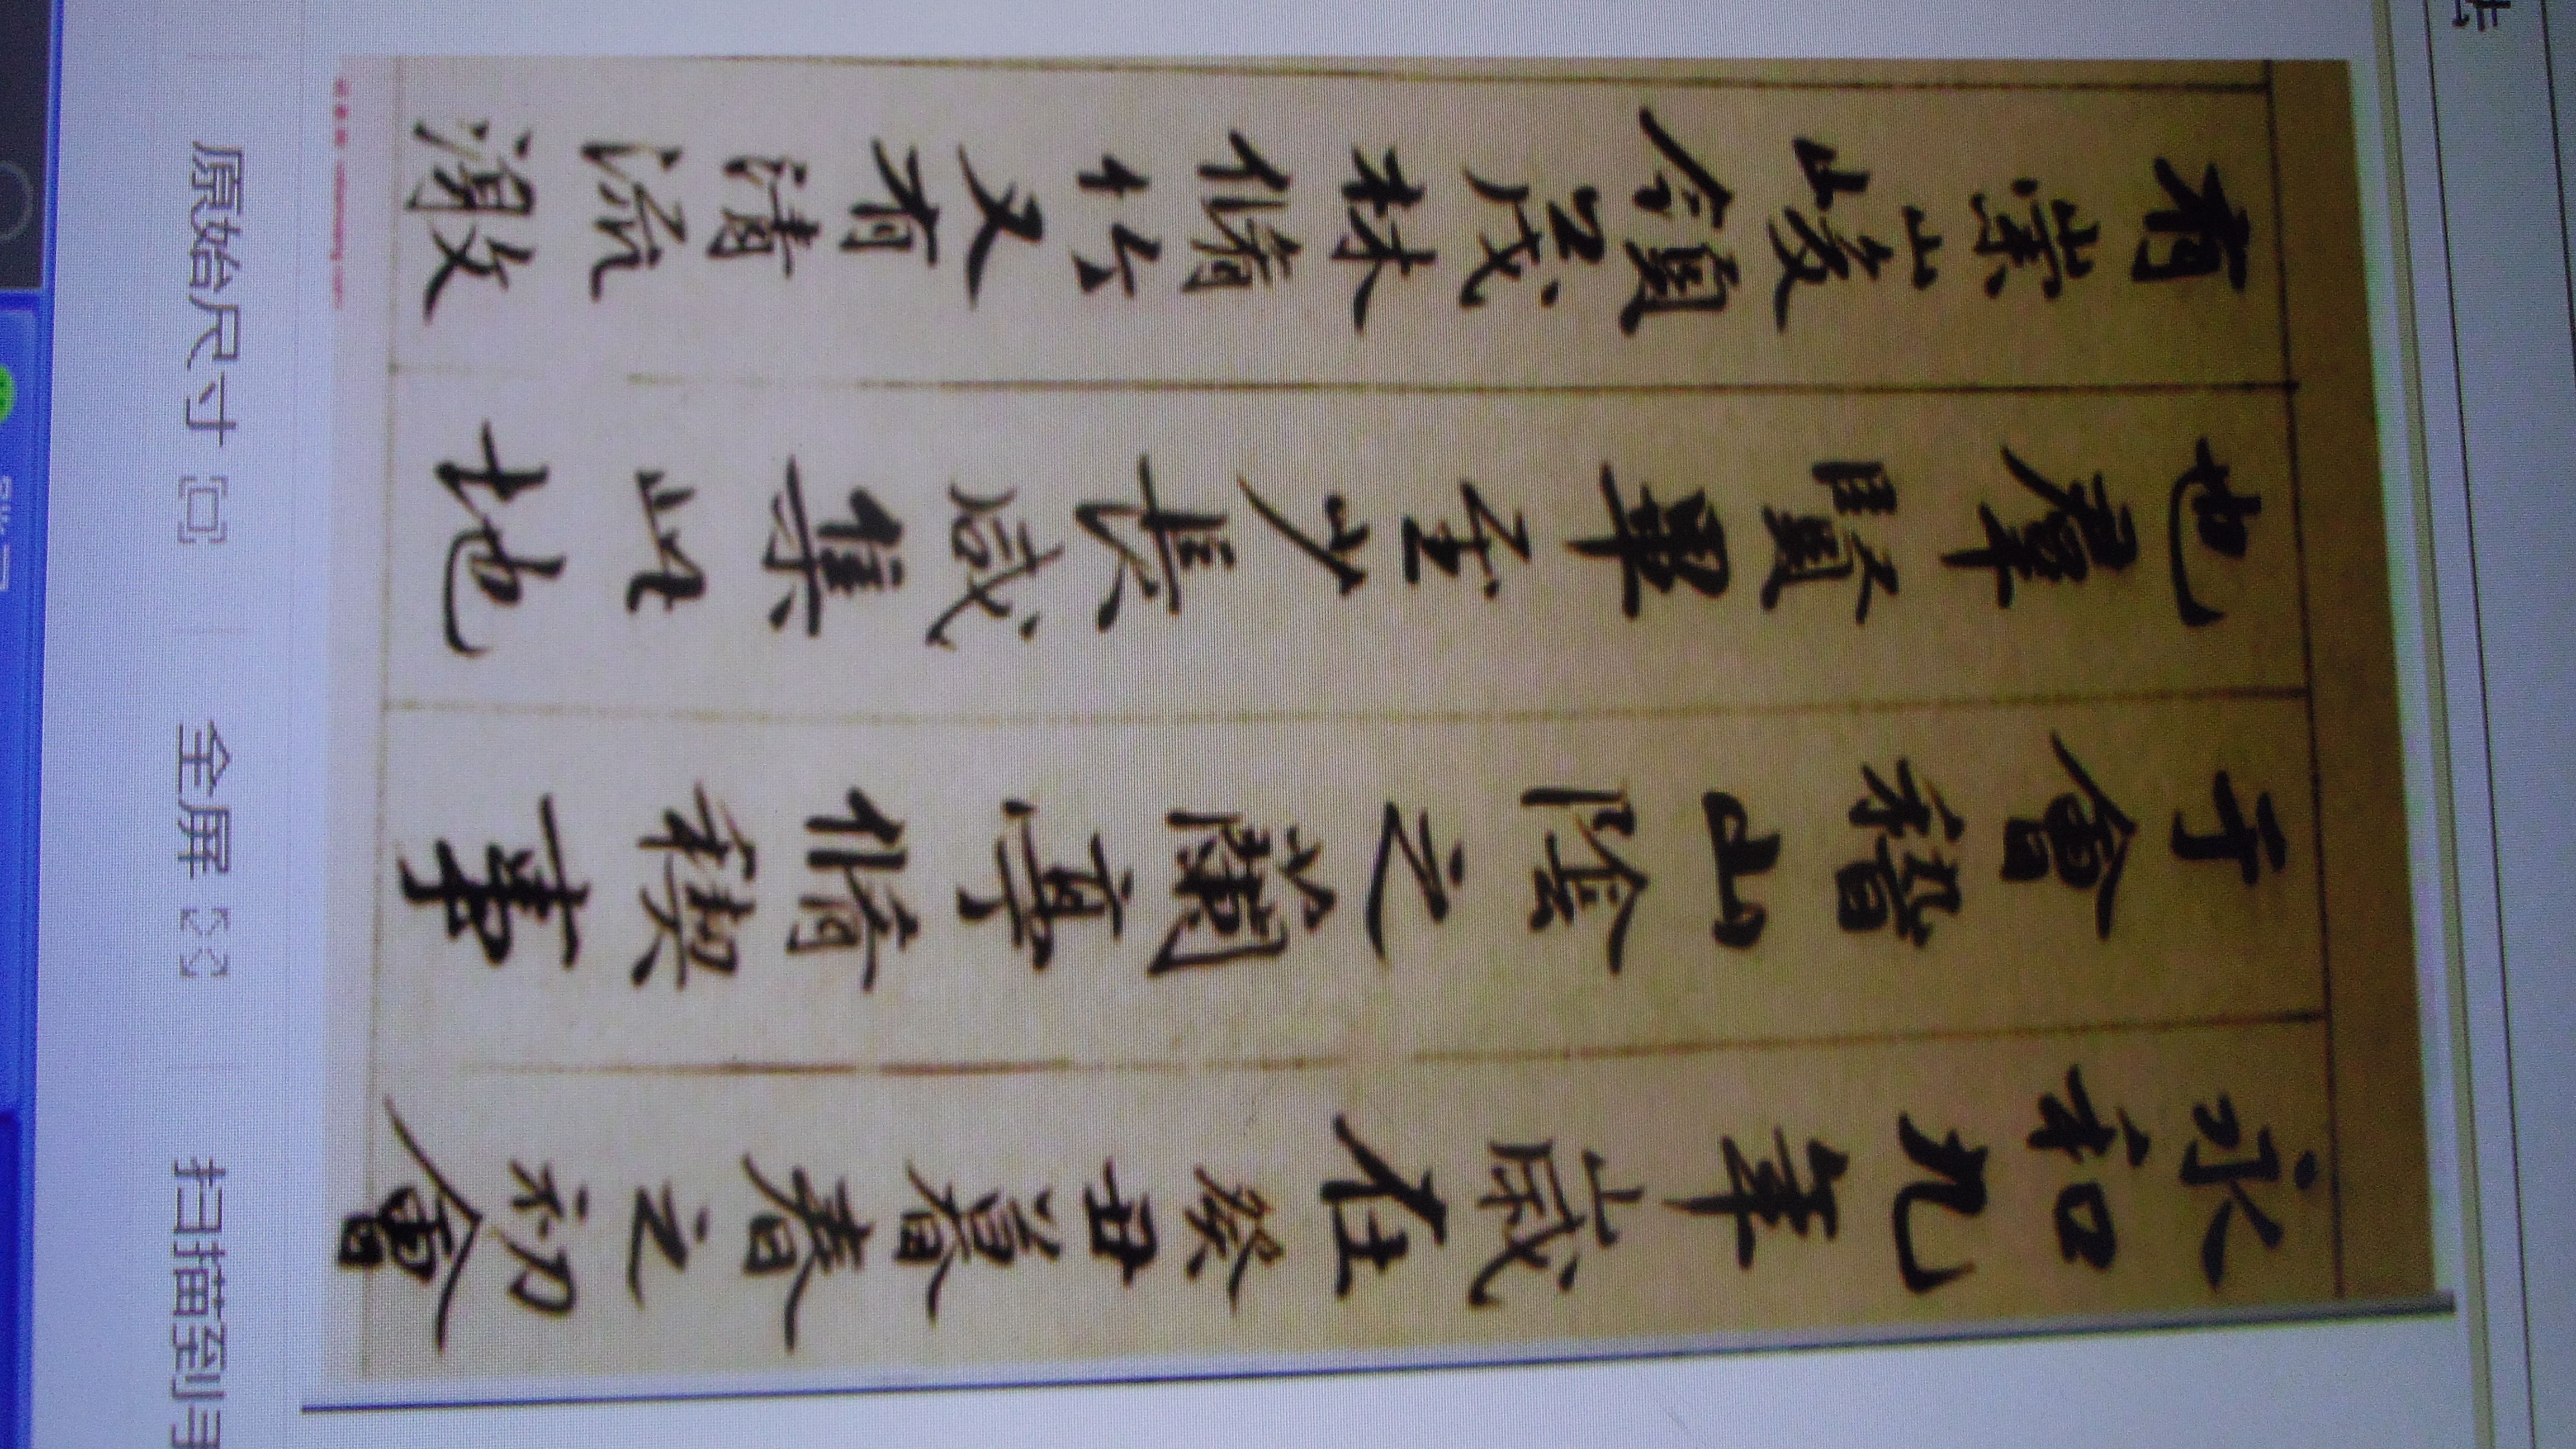 永和九年歲在癸丑暮春之初會
于會稽山陰之蘭亭脩稧事
也羣賢畢至少長咸集此地
有崇山峻領茂林脩竹又有清流激
原始尺寸
全屏
扫描至到手